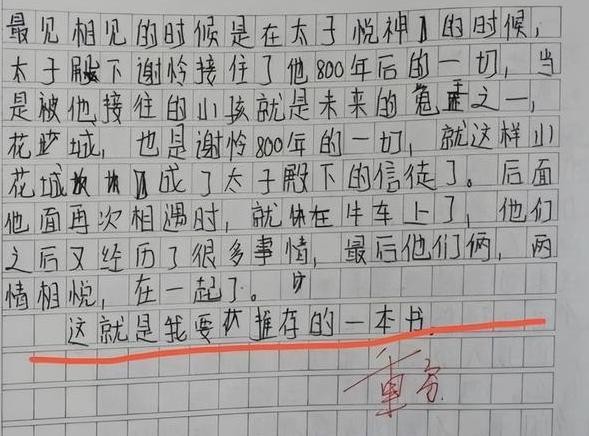 最见相见的时候是在太子悦神的时候,
太子殿下谢怜接住了他800年后的一切,当
是被他接住的小孩就是未来的鬼王之一,
花城,也是谢怜800年的一切,就这样小
花城成了太子殿下的信徒了。后面
他面再次相遇时,就在牛车上了,他们
之后又经历了很多事情,最后他们俩,两
情相悦,在一起了。
这就是我要推存的一本书.
重写